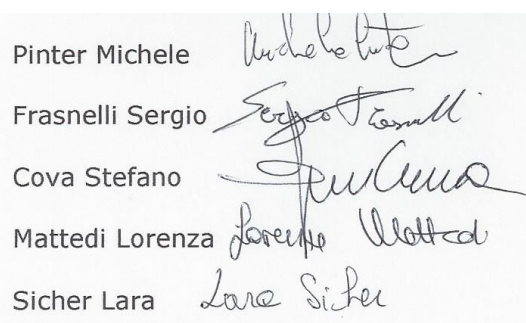 Pinter Michele Michele Pinter
Frasnelli Sergio Sergio Frasnelli
Cova Stefano
Mattedi Lorenza Lorenza Mattedi
Sicher Lara Lara Sicher